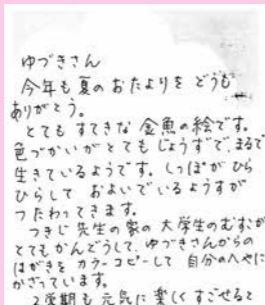 ゆづきさん
今年も夏のおたよりをどうも
ありがとう。
とてもすてきな金魚の絵です。
色づかいがとてもじょうずで、まるで
生きているようです。しっぽがひら
ひらして およいでいるようすが
つたわってきます。
つきじ先生の家の大学生のむすめが
とてもかんどうして、ゆづきさんからの
はがきをカラーコピーして自分のへやに
かざっています。
2学期も元気に楽しくすごせると